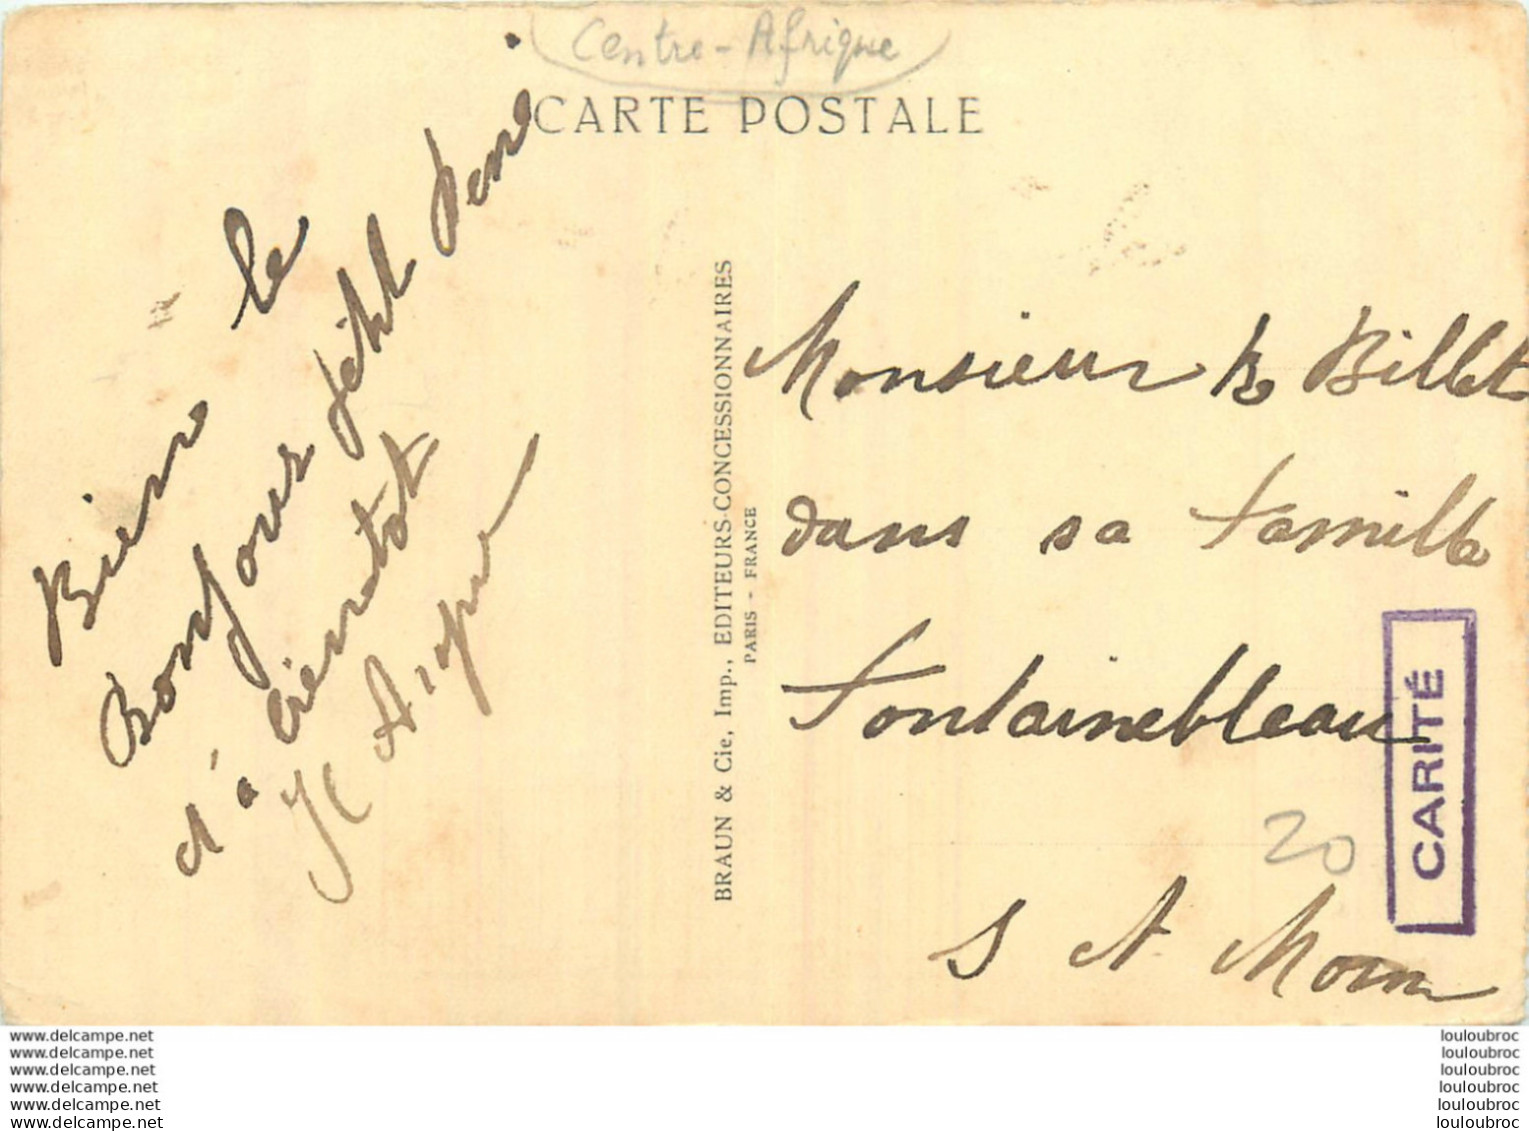 Centre-Afrique
CARTE POSTALE
Bien le
Bonjour petit
d'a bientot
BRAUN & Cie, Imp., EDITEURS-CONCESSIONNAIRES
PARIS - FRANCE
Monsieur Billet
dans sa famille
Fontainebleau
S et M
CARITÉ
20
www.delcampe.net
www.delcampe.net
www.delcampe.net
www.delcampe.net
www.delcampe.net
www.delcampe.net
louloubroc
louloubroc
louloubroc
louloubroc
louloubroc
louloubroc